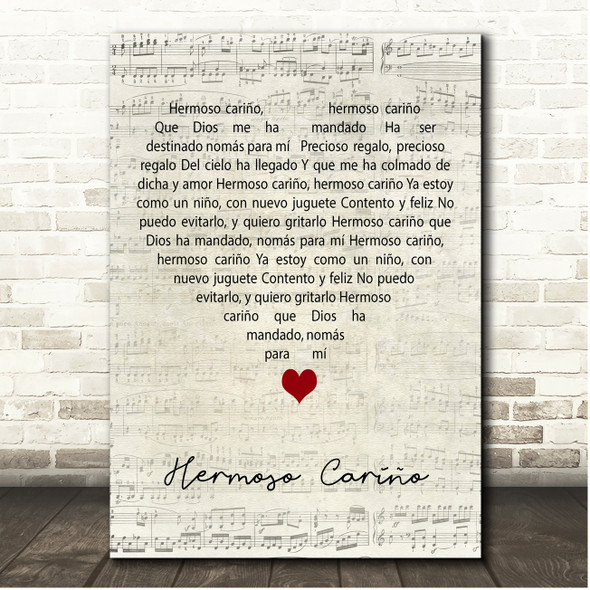 Hermoso cariño, hermoso cariño
Que Dios me ha mandado Ha ser
destinado nomás para mí Precioso regalo, precioso
regalo Del cielo ha llegado Y que me ha colmado de
dicha y amor Hermoso cariño, hermoso cariño Ya estoy
como un niño, con nuevo juguete Contento y feliz No
puedo evitarlo, y quiero gritarlo Hermoso cariño que
Dios ha mandado, nomás para mí Hermoso cariño,
hermoso cariño Ya estoy como un niño, con
nuevo juguete Contento y feliz No puedo
evitarlo, y quiero gritarlo Hermoso
cariño que Dios ha
mandado, nomás
para mí
Hermoso Cariño